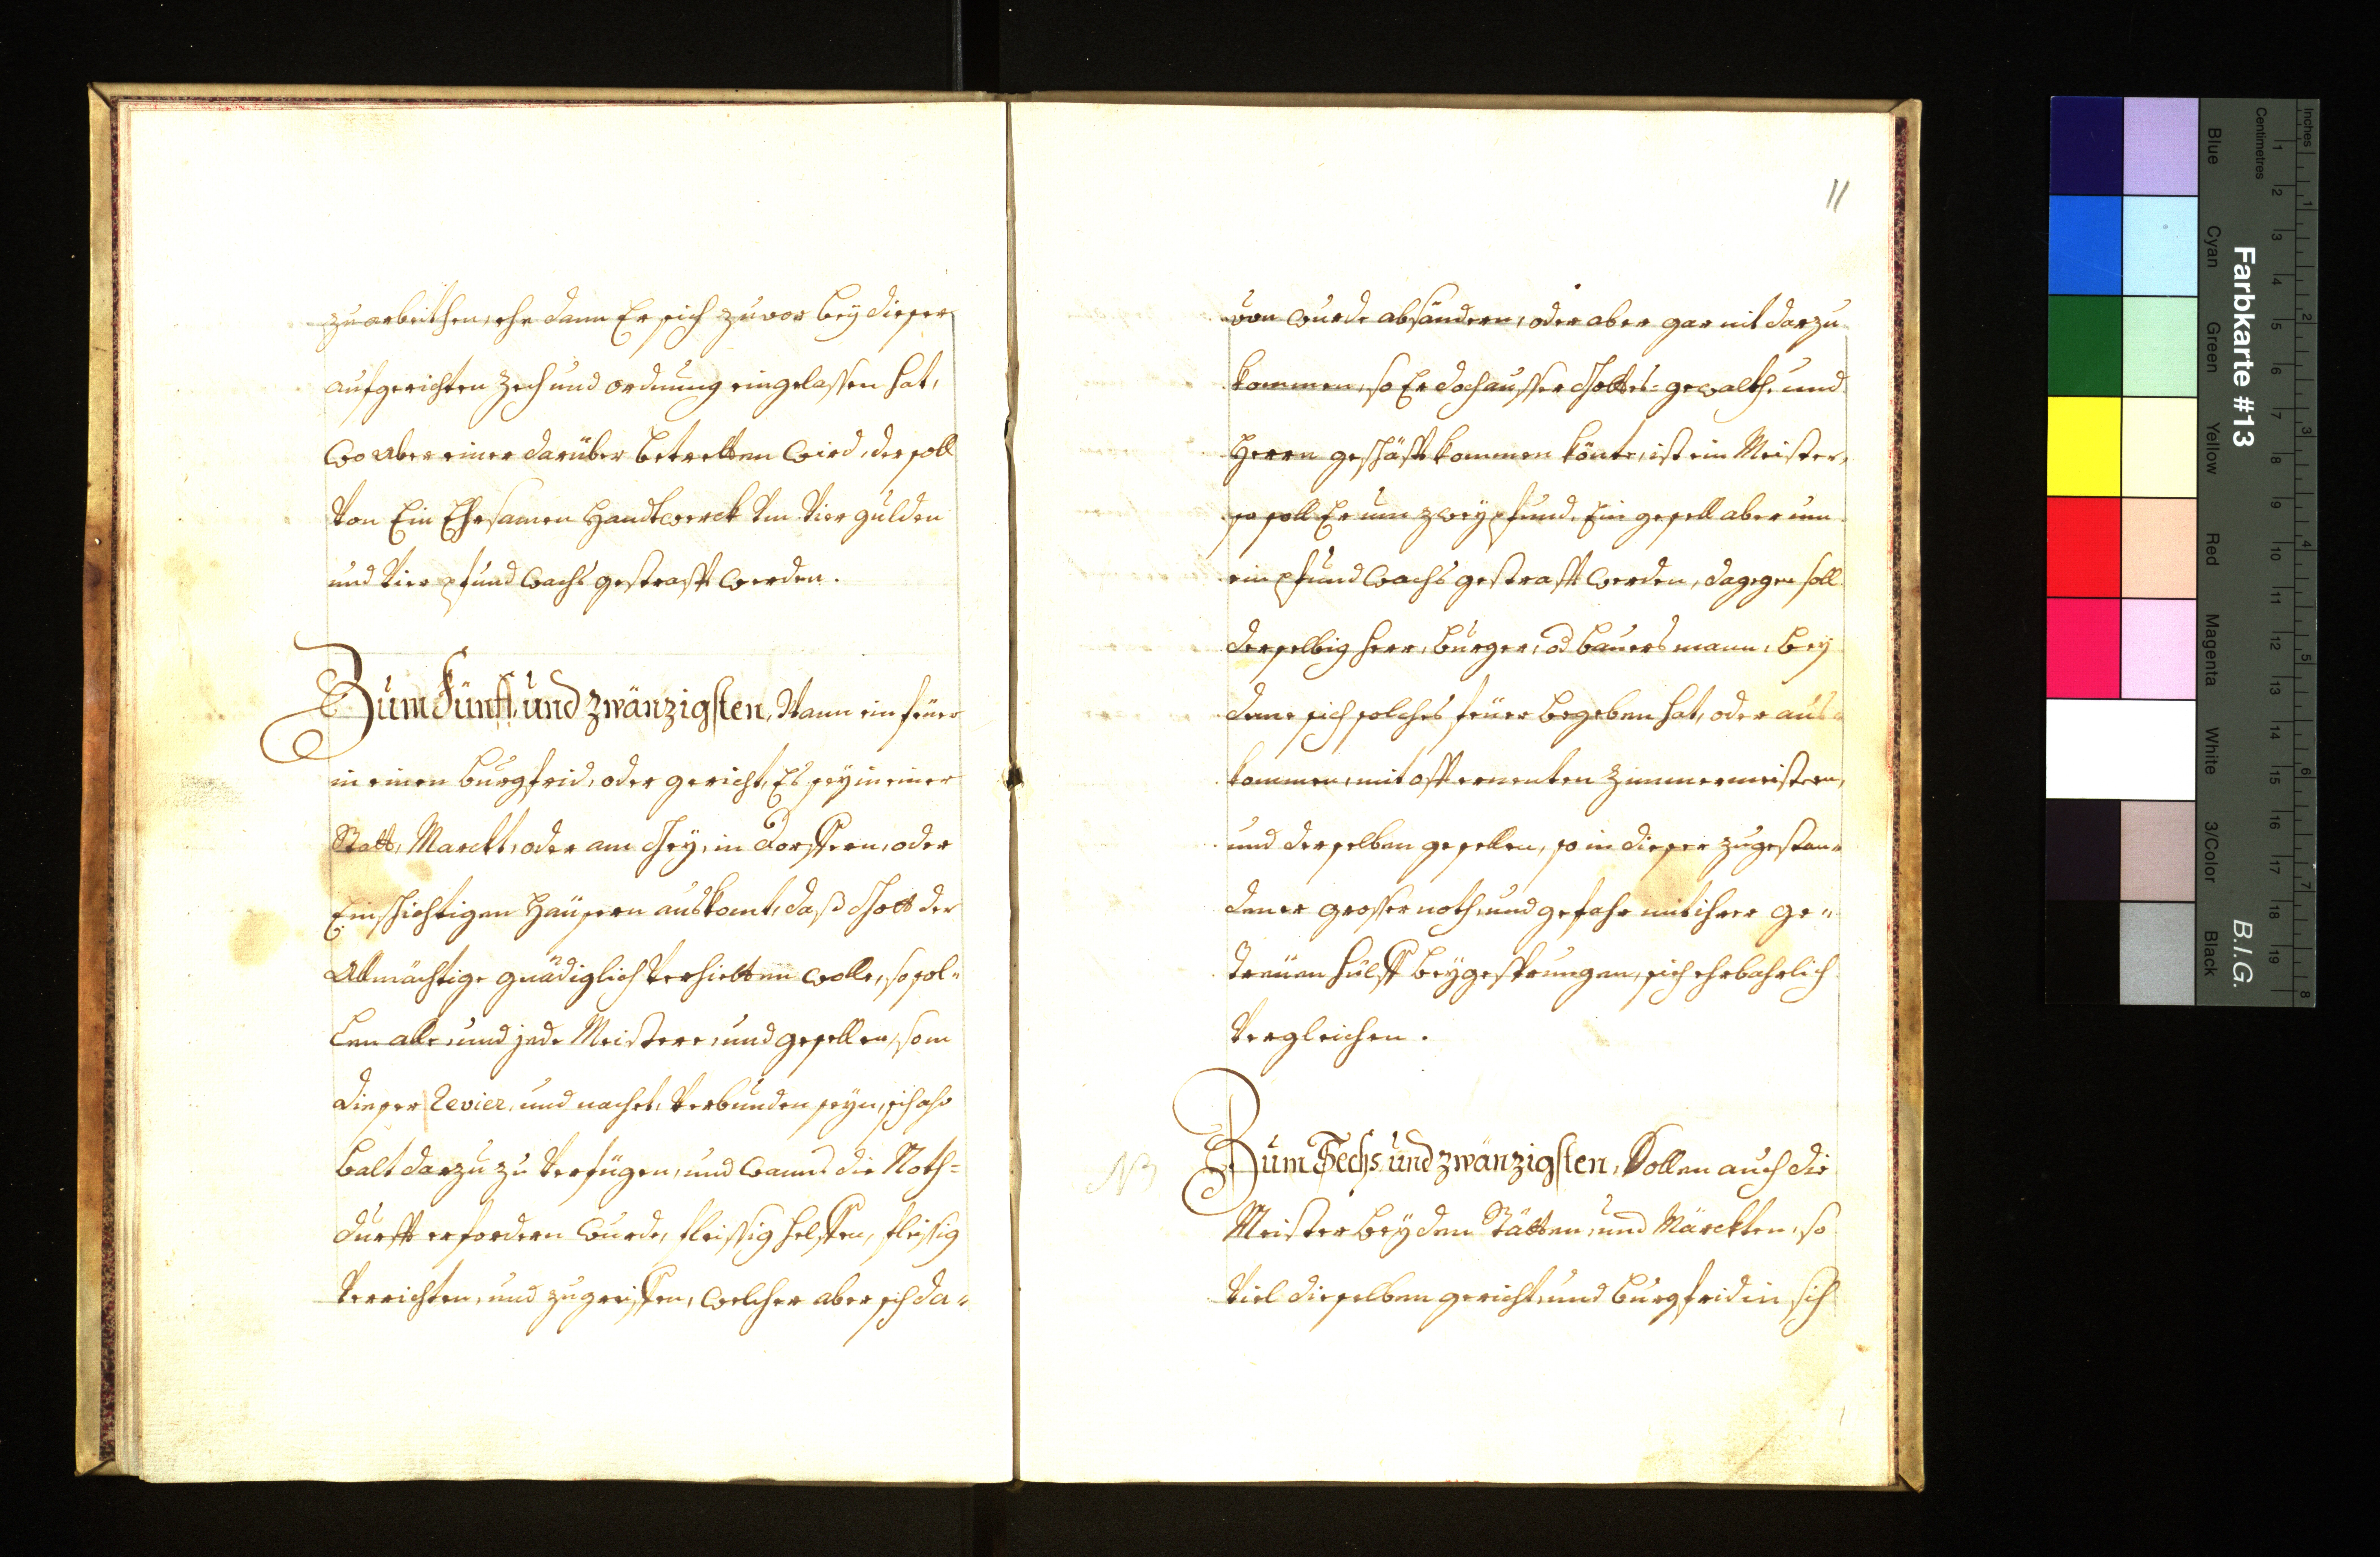 zu arbeithen, ehe dann Er sich zuvor bey dieser
aufgerichten Zech und ordnung eingelassen hat,
wo aber einer darüber betretten wird, der soll
Von Ein Ehrsamen Handtwerck Um Vier gulden
und Vier pfund wachs gestrafft werden.
Zum Fünff und zwänzigsten, Wann ein feüer
in einen burgfrid, oder gericht, Es seÿ in einer
Statt, Marckt, oder am Geÿ, in dorffern, oder
Einschichtigen Haüsern auskomt, daß Gott der
Allmächtige gnädiglich Verhietten wolle, so sol-
len alle, und jede Meistere, und gesellen, so in
dieser Revier, und nachet, Verbunden seyn, sich also
balt darzu zu Verfügen, und wanns die Noth-
durfft erfordern wurde, fleissig helffen, fleissig
Verrichten, und zugreiffen, welcher aber sich da-
11
von wurde absändern, oder aber gar nit darzu
kommen, so Er doch ausser Gottes-gewalth, und
Herrn geschäfft kommen könte, ist ein Meister,
so soll Er um zweÿ pfund, Ein gesell aber um
ein pfund wachs gestrafft werden, dagegen soll
derselbig herr, burger, od bauersmann, beÿ
deme sich solches feüer begeben hat, oder aus-
kommen, mit offt ernenten Zimmermeistern,
und derselben gesellen, so in dieser zugestan-
dener grosser noth, und gefahr mit ihrer ge-
treüen hülff beÿgesprungen, sich ehrbahrlich
Vergleichen.
NB
Zum Sechs und zwänzigsten, Sollen auch die
Meister beÿ den Stätten, und Märckten, so
Viel dieselben gericht, und burgfrid in sich
Farbkarte #13
B.I.G.
Inches
Centimetres
1 2 3 4 5 6 7 8 9 10 11 12 13 14 15 16 17 18 19
1 2 3 4 5 6 7 8
Blue
Cyan
Green
Yellow
Red
Magenta
White
3/Color
Black